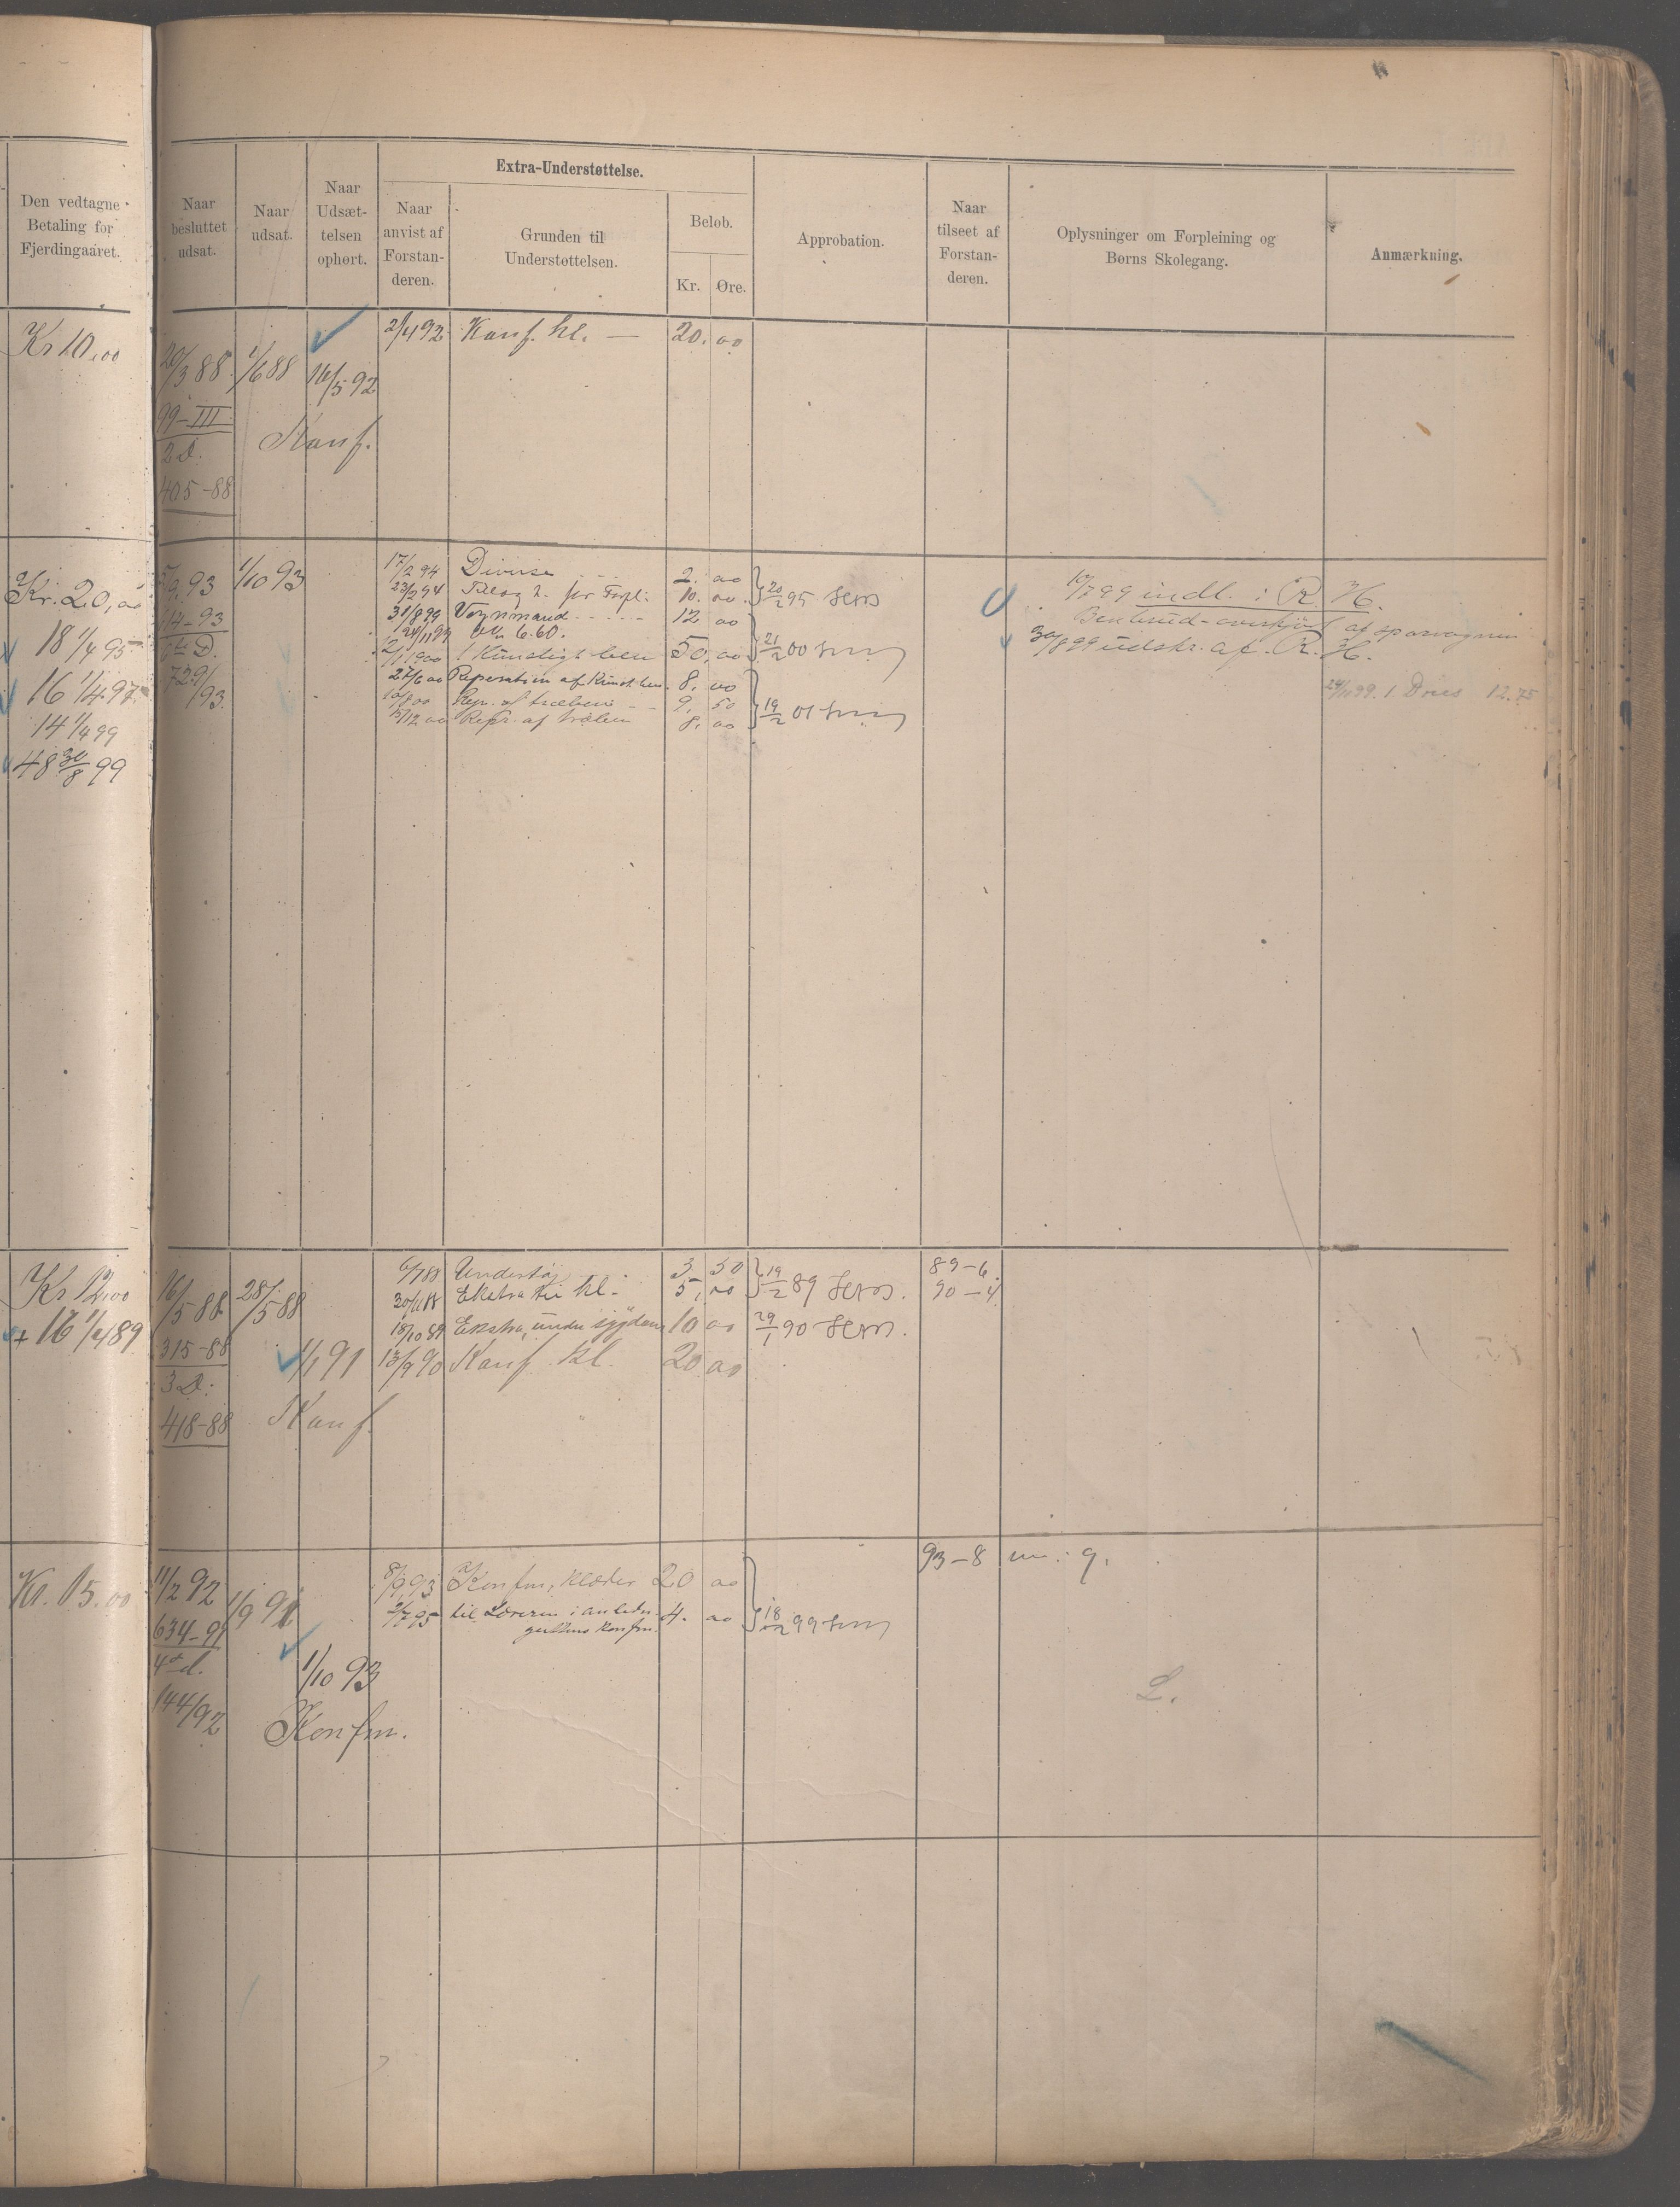 Den vedtagne
Betaling for
Fjerdingaaret.
Naar
besluttet
udsat.
Naar
udsat.
Naar
Udsæt-
telsen
ophørt.
Extra-Understøttelse.
Naar
anvist af
Forstan-
deren.
Grunden til
Understøttelsen.
Beløb.
Kr. Øre.
Approbation.
Naar
tilseet af
Forstan-
deren.
Oplysninger om Forpleining og
Børns Skolegang.
Anmærkning.
Kr 10,00
20/3 88 1/6 88 16/5 92 2/4 92 Konf. kl. — 20. 00
99-III
2 D.
Konf.
405-88
Kr. 20,00
18 1/4 95
16 1/4 97
14 1/4 99
48 30/8 99
93 1/10 93
14-93
D.
729/93.
17/2 94 Diverse 2. 00
23/2 94 for Forpl. 10. 00 20/2 95
31/8 99 Vognmand 12 00
24/11 99 6.60.
1900 1 Kunstigt ben 50,00 21/2 00
27/6 00 Reperation af Kunst. ben 8. 00
10/8 00 Rep. af træben 9. 50 19/2 01
15/12 00 Repr. af træben 8. 00
10/7 99 indl. i R. H.
Benbrud - overkjørt af sporvognen
30/8 99 udskr. af R. H.
24/11 99. 1 12.75
Kr 12,00
+ 16 1/4 89
16/5 88 28/5 88
315-88
3 D.
418-88
1/1 91
Konf.
6/7 88 Undertøj 3 50
30/11 88 Ekstra kl. 5, 00 19/2 89
18/10 89 Ekstra under sygdom 10 00 29/1 90
13/9 90 Konf. kl. 20 00
89-6.
90-4
Kr. 15.00
11/2 92 1/9 91
634-91
4de d.
144/92
1/10 93
Konfm.
8/9 93 Konfm, klæder 20 00
2/7 95 til Læreren i anledn. 4. 00
konfm.
18/2 99
93-8 m. g.
L.